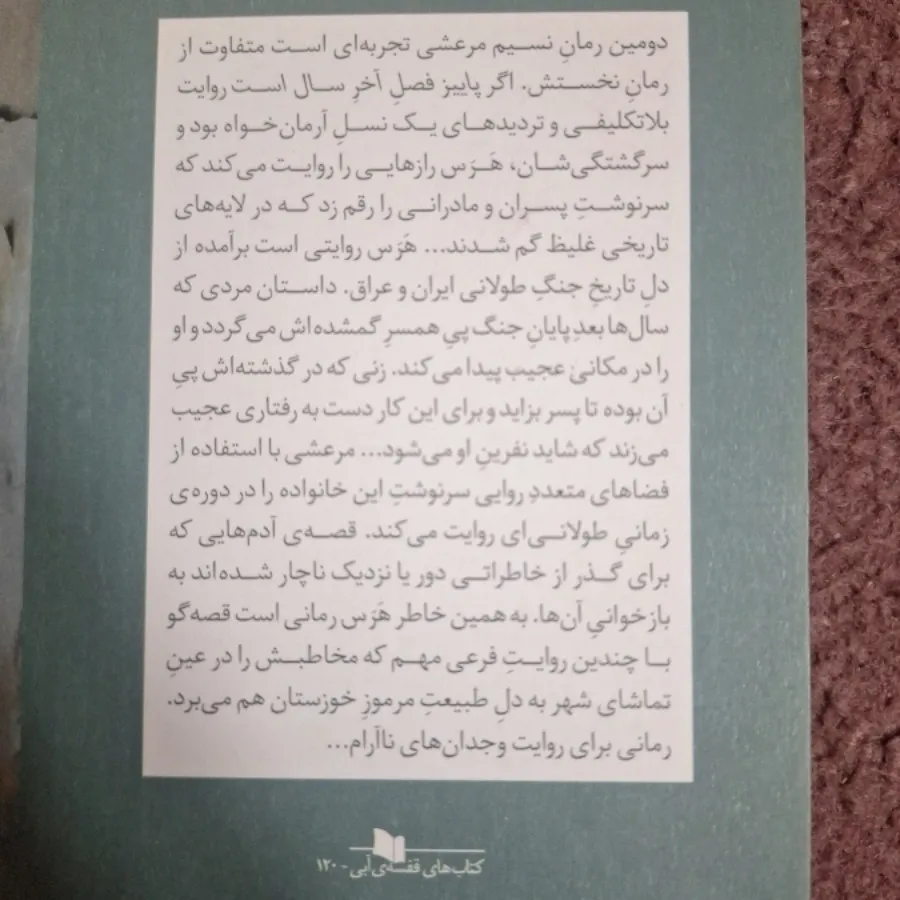 دومین رمانِ نسیم مرعشی تجربه‌ای است متفاوت از
رمانِ نخستش. اگر پاییز فصلِ آخرِ سال است روایت
بلاتکلیفی و تردیدهای یک نسلِ آرمان‌خواه بود و
سرگشتگی‌شان، هَرَس رازهایی را روایت می‌کند که
سرنوشتِ پسران و مادرانی را رقم زد که در لایه‌های
تاریخی غلیظ گم شدند... هَرَس روایتی است برآمده از
دلِ تاریخِ جنگِ طولانی ایران و عراق. داستان مردی که
سال‌ها بعدِ پایانِ جنگ پیِ همسرِ گمشده‌اش می‌گردد و او
را در مکانی عجیب پیدا می‌کند. زنی که در گذشته‌اش پیِ
آن بوده تا پسر بزاید و برای این کار دست به رفتاری عجیب
می‌زند که شاید نفرینِ او می‌شود... مرعشی با استفاده از
فضاهای متعددِ روایی سرنوشتِ این خانواده را در دوره‌ی
زمانیِ طولانی‌ای روایت می‌کند. قصه‌ی آدم‌هایی که
برای گذر از خاطراتی دور یا نزدیک ناچار شده‌اند به
بازخوانیِ آن‌ها. به همین خاطر هَرَس رمانی است قصه‌گو
با چندین روایتِ فرعی مهم که مخاطبش را در عینِ
تماشای شهر به دلِ طبیعتِ مرموزِ خوزستان هم می‌برد.
رمانی برای روایت وجدان‌های ناآرام...
کتاب‌های قفسه‌ی آبی - ۱۲۰